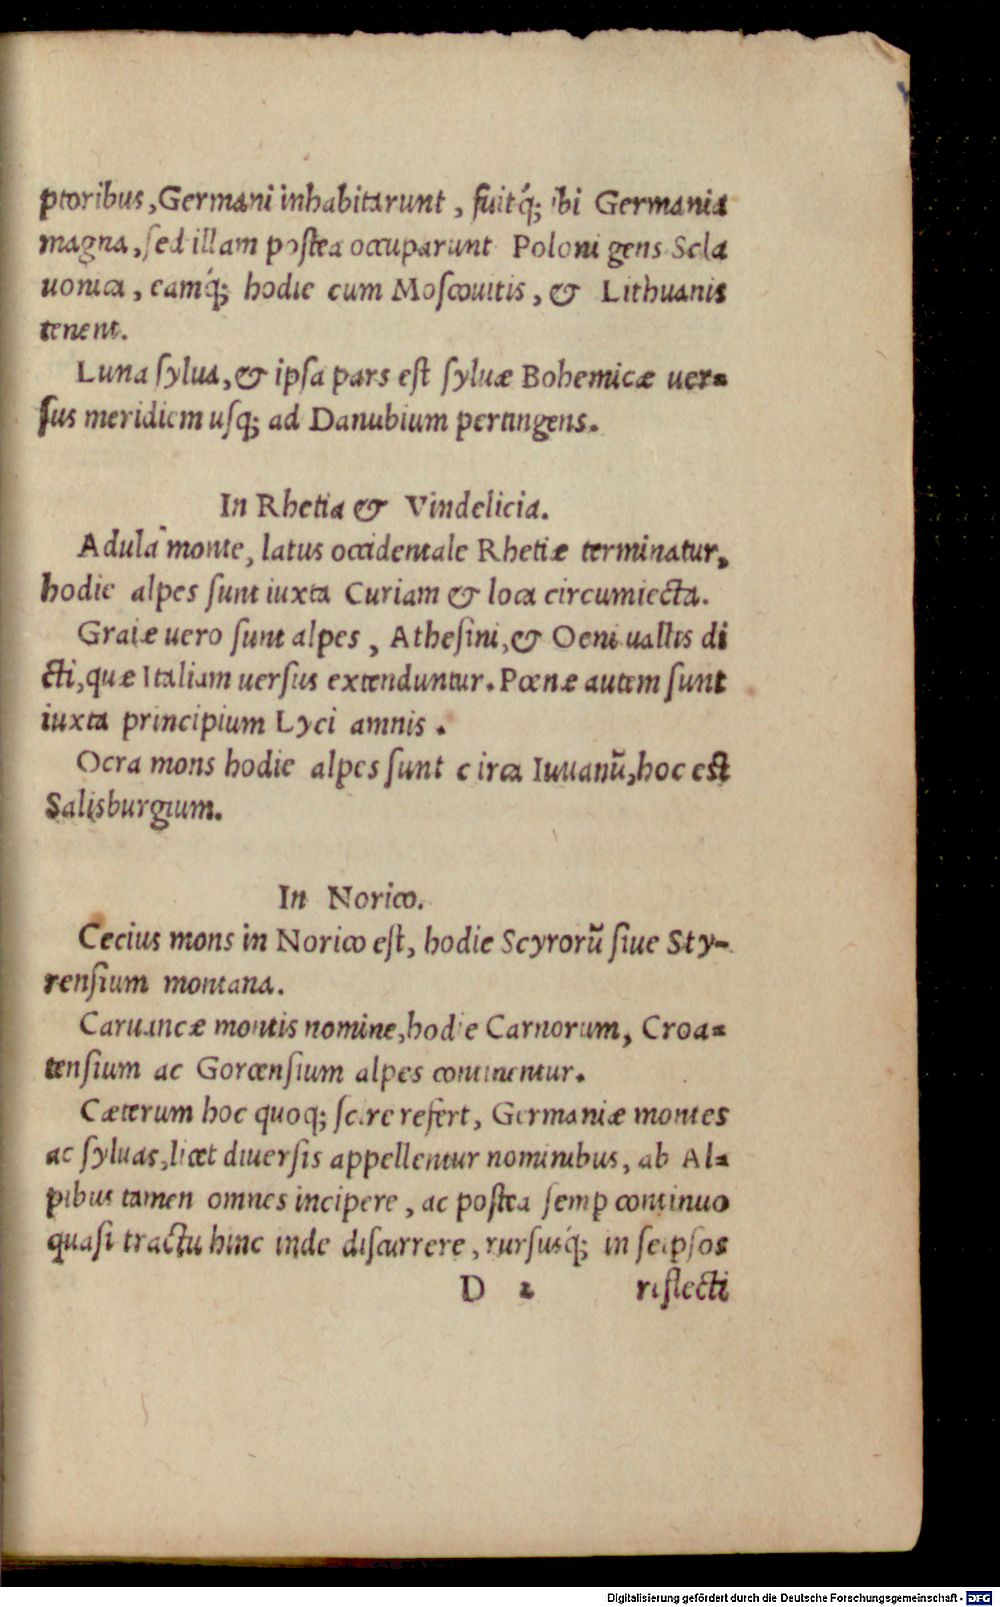 ptoribus, Germani inhabitarunt, fuitq́; ibi Germania
magna, sed illam postea occuparunt Poloni gens Scla
uonica, eamq́; hodie cum Moscouitis, & Lithuanis
tenent.
Luna sylua, & ipsa pars est syluæ Bohemicæ uer=
sus meridiem usq; ad Danubium pertingens.
In Rhetia & Vindelicia.
Adula monte, latus occidentale Rhetiæ terminatur,
hodie alpes sunt iuxta Curiam & loca circumiecta.
Graiæ uero sunt alpes, Athesini, & Oeni uallis di
cti, quæ Italiam uersus extenduntur. Pœnæ autem sunt
iuxta principium Lyci amnis.
Ocra mons hodie alpes sunt circa Iuuanũ, hoc est
Salisburgium.
In Norico.
Cecius mons in Norico est, hodie Scyrorũ siue Sty-
rensium montana.
Caruancæ montis nomine, hodie Carnorum, Croa=
tensium ac Gorcensium alpes continentur.
Cæterum hoc quoq; scire refert, Germaniæ montes
ac syluas, licet diuersis appellentur nominibus, ab Al=
pibus tamen omnes incipere, ac postea semp continuo
quasi tractu hinc inde discurrere, rursusq́; in seipsos
D 2 reflecti
Digitalisierung gefördert durch die Deutsche Forschungsgemeinschaft - DFG